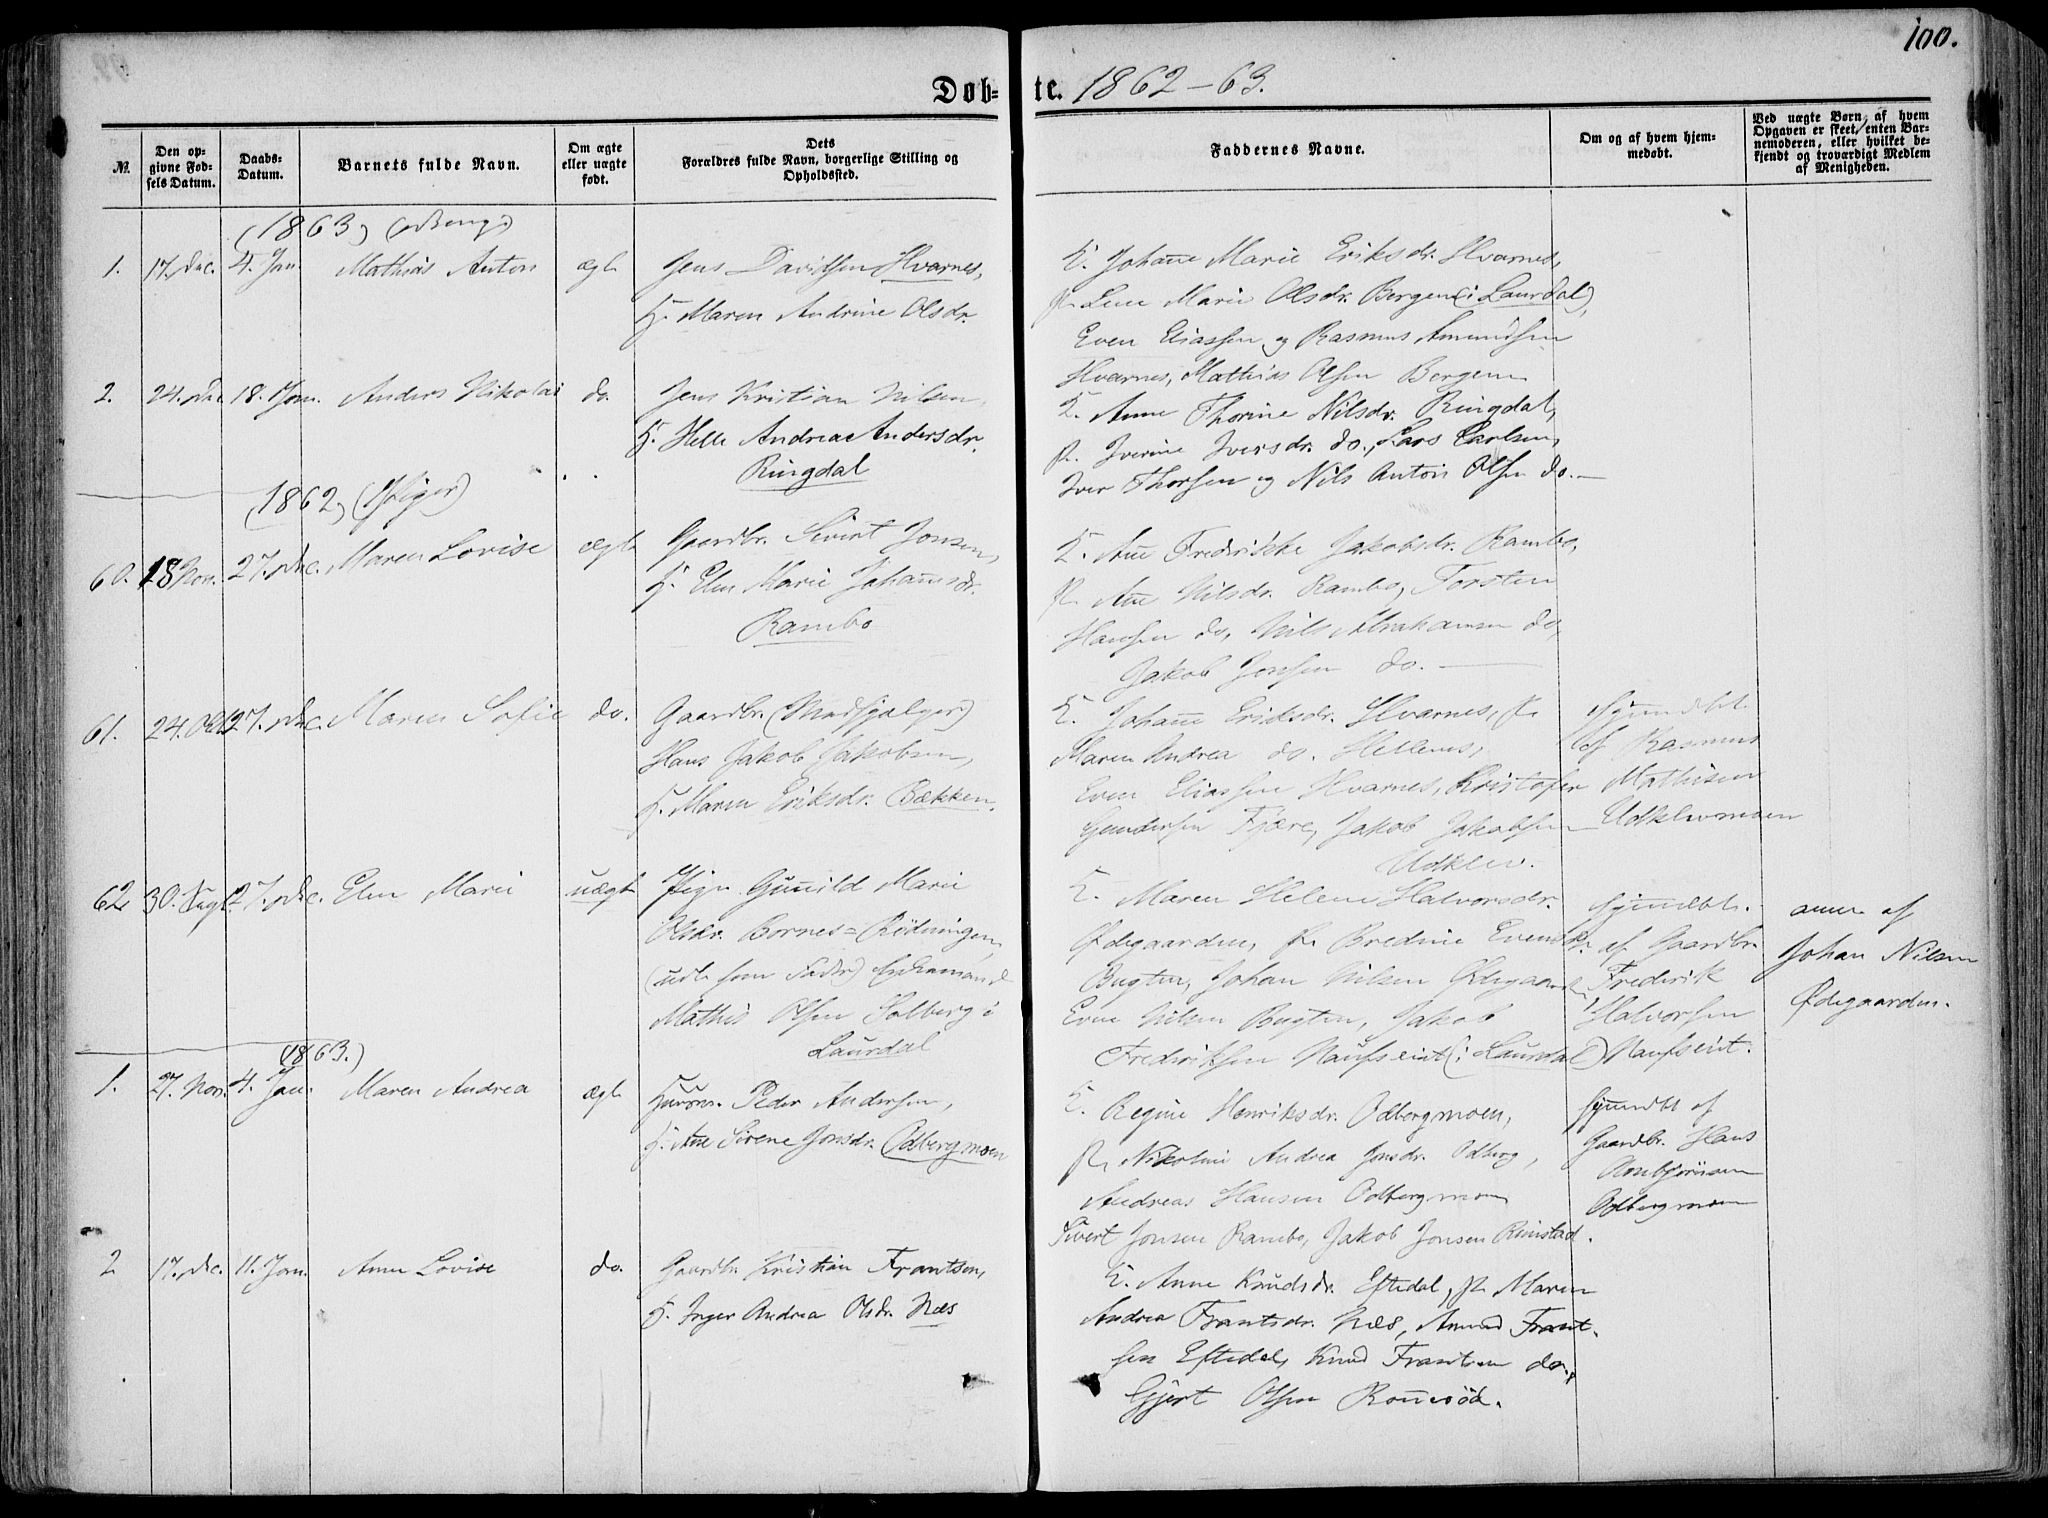 100.
Døb= te. 1862-63.
№.
Den opgivne Fødsels Datum.
Daabs-Datum.
Barnets fulde Navn.
Om ægte eller uægte født.
Dets Forældres fulde Navn, borgerlige Stilling og Opholdssted.
Faddernes Navne.
Om og af hvem hjemmedøbt.
Ved uægte Børn, af hvem Opgaven er skeet, enten Barnemoderen, eller hvilket bekjendt og troværdigt Medlem af Menigheden.
(1863)
1. 17. Dec. 4. Jan. Mathias Anton ægt.
Jens Davidsen Hvarnes,
H. Maren Andrine Olsdr.
K. Johan̄e Marie Eriksdr. Hvarnes,
P. Lene Marie Olsdr. Bergen (i Laurdal),
Even Eliassen og Rasmus Amundsen
Hvarnes, Mathias Olsen Bergen
2. 24. Dec. 18. Jan. Anders Nikolai do.
Jens Kristian Nilsen,
H. Helle Andrea Andersdr.
Ringdal
K. Anne Thorine Nilsdr. Ringdal,
P. Iverine Iversdr. do., Lars Carlsen,
Iver Thorsen og Nils Anton Olsen do.
(1862)
60. 18 Nov. 27. Dec. Maren Lovise ægt.
Gaardbr. Sivert Jonsen,
H. Elen Marie Johan̄sdr.
Rambo
K. An̄e Fredrikke Jakobsdr. Rambo,
P. An̄e Nilsdr. Rambo, Torsten
Hansen do, Nils Abrahamsen do,
Jakob Jonsen do.
61. 24. Oct. 27. Dec. Maren Sofie do.
Gaardbr.
Hans Jakob Jakobsen,
H. Maren Eriksdr. Bækken.
K. Johan̄e Eriksdr. Hvarnes, P.
Maren Andrea do. Hellenes,
Even Eliassen Hvarnes, Kristofer
Gundersen Fjære, Jakob Jakobsen
Udklev.
Hjem̄dbt.
af Rasmus
Mathisen
Udklevmoen
62 30. Aug. 27. Dec. Elen Marie uægt
Pige Gun̄ild Marie
Olsdr. Bornes=Rödningen,
(udl. som Fader)
Mathis Olsen Solberg i
Laurdal
K. Maren Helene Halvorsdr.
Ødegaarden, P. Bredine Evensdr.
Bugten, Johan Nilsen Ødegaarden
Even Nilsen Bugten, Jakob
Fredriksen Haufseint (i Laurdal)
Hjem̄dbt.
af Gaardbr.
Fredrik
Halvorsen
Haufseint.
anm. af
Johan Nilsen
Ødegaarden.
(1863.)
1. 27. Nov. 4. Jan. Maren Andrea ægt.
Husm. Peder Andersen,
H. An̄e Sirene Jonsdr. Odbergmoen
K. Regine Henriksdr. Odbergmoen,
P. Nikoline Andrea Jonsdr. Odberg,
Andreas Hansen Odbergmoen
Sivert Jonsen Rambo, Jakob Jonsen Rimstad.
Hjem̄dbt af
Gaardbr. Hans
Arnbjörnsen
Odbergmoen
2 17. Dec. 11. Jan. Anne Lovise do.
Gaardbr. Kristian Frantsen,
H. Inger Andrea Olsdr. Næs
K. Anne Knudsdr. Eftedal, P. Maren
Andrea Frantsdr. Næs, Amund Frant-
sen Eftedal, Knud Frantsen do.,
Gjert Olsen Ron̄esöd.